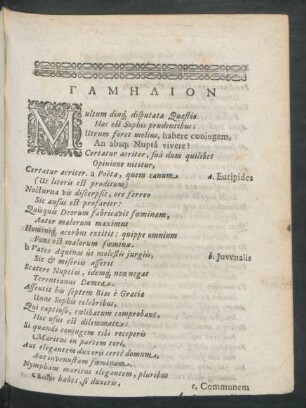 ΓΑΜΗΛΙΟΝ
Multum diuq́; disputata Quæstio
Hæc est Sophis prudentibus:
Utrum foret melius, habere conjugem,
An absq; Nuptâ vivere?
Certatur acriter, suâ dum quilibet
Opinione nititur,
Certatur acriter. a Poëta, quem canum
a. Euripides
(Ut literis est proditum)
Nocturna vis discerpsit, ore ferreo
Sic ausus est profarier:
Quisquis Deorum fabricavit fœminam,
Autor malorum maximus
Hominiq́; acerbus extitit: quippe omnium
Fons est malorum fœmina.
b Vates Aquinas ut molestis jurgiis,
b. Juvenalis
Sic & miseriis asserit
Scatere Nuptias, idemq́; non negat
Terentianus Demea.
Assentit his septem Bias è Græcia
Unus Sophis celebribus,
Qui captiosè, cælibatum comprobans,
Hoc usus est dilemmate:
Si quando conjugem tibi receperis
Maritus in partem tori,
Aut elegantem duxeris certè domum,
Aut invenustam fœminam.
Nympham maritus elegantem, pluribus
habes, si duxeris,
c. Communem